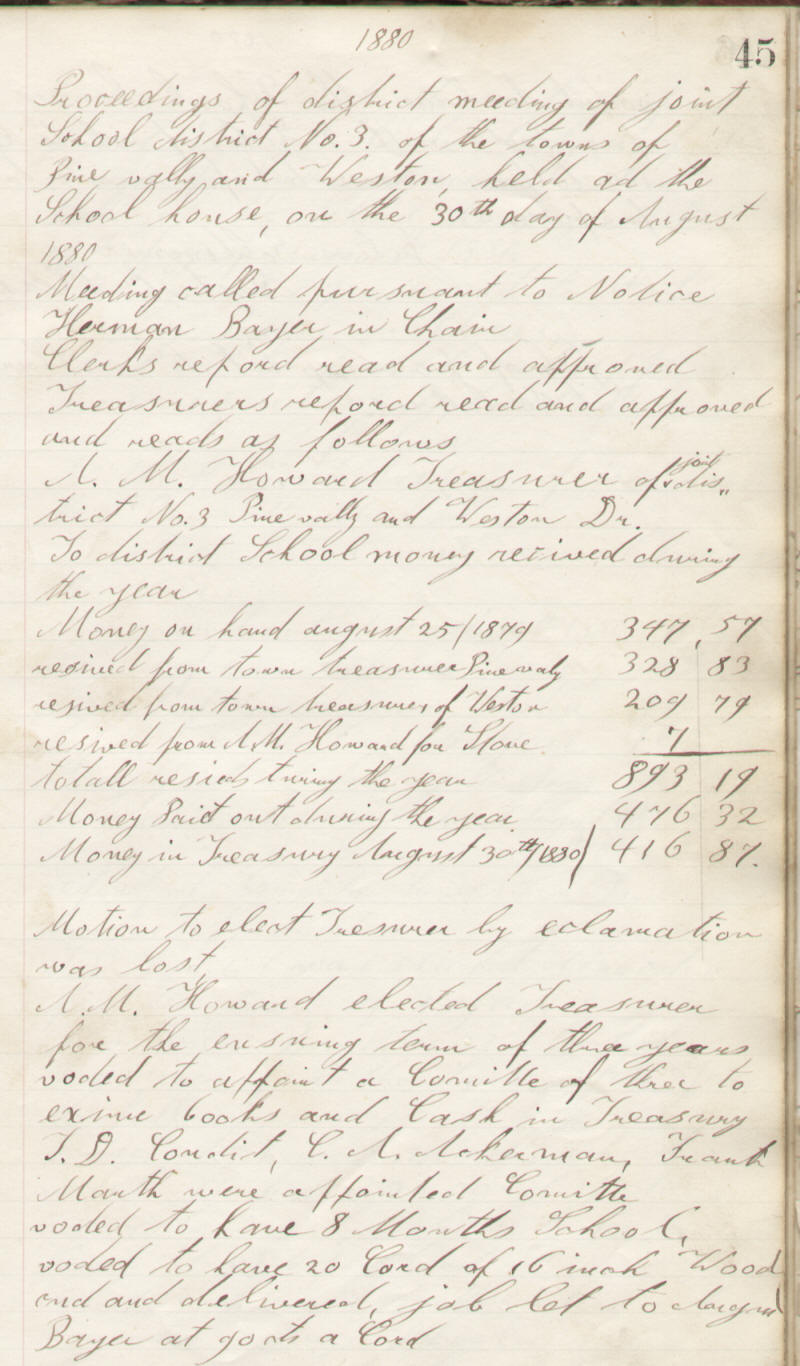 1880
45
Proceedings of district meeding of joint
School district No. 3. of the towns of
Pine vally and Weston, held ad the
School house, on the 30th day of August
1880
Meeding called pursuant to Notice
Herman Bayer in Chair
Clerks repord read and approved
Treasurers repord read and approved
and reads as follows
A. M. Howard Treasurer of joint dis„
trict No. 3 Pine vally and Weston Dr.
To district School money recived during
the year
Money on hand august 25/1879 347,57
resived from town treasurer Pine valy 328 83
resived from town treasurer of Weston 209 79
resived from A.M. Howard for Stove 7
totall during the year 893 19
Money Paid out during the year 476 32
Money in Treasury August 30th/1880 416 87.
Motion to elect Tresurer by eclamation
was lost,
A. M. Howard elected Treasurer
for the ensuing term of three years
voded to appoint a Comitte of three to
exime books and Cash in Treasury
T. D. Condit, C. A. Ackerman, Frank
Marth were appointed Comitte
voded to have 8 Months School,
voded to have 20 Cord of 16 inch Wood
and delivered, job let to August
Bayer at 90cts a Cord